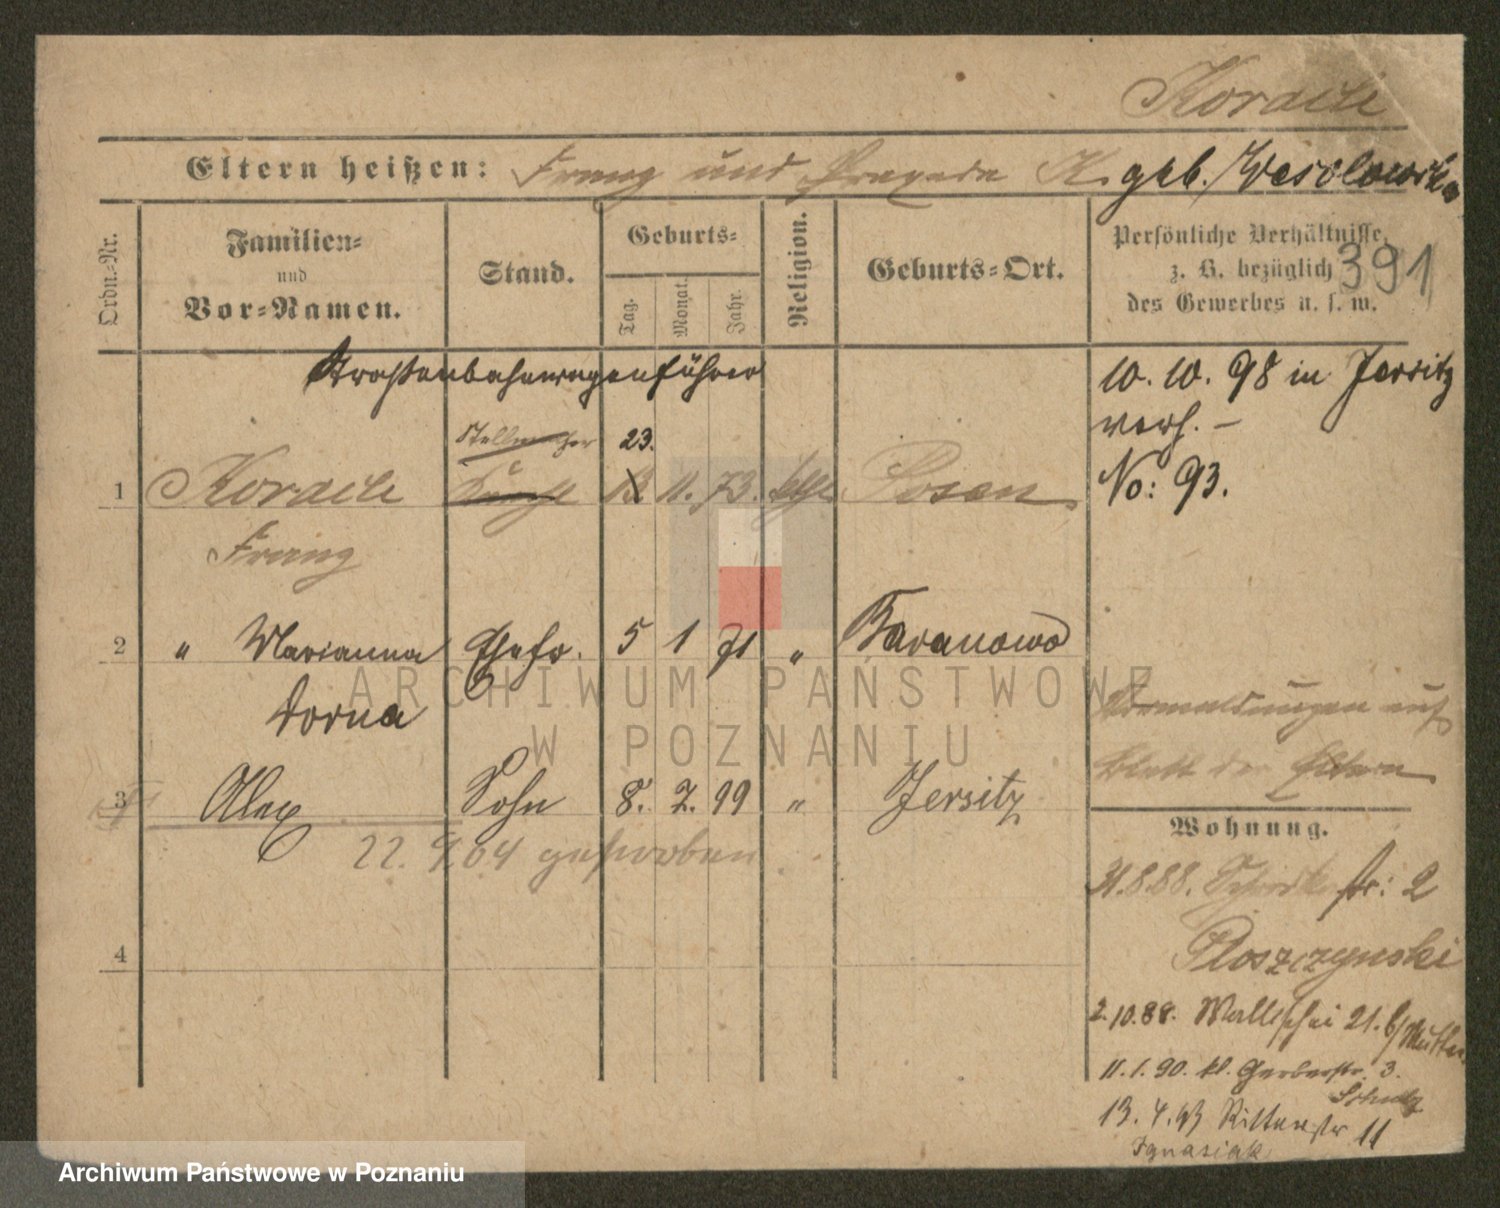 Koracki
Eltern heißen: Franz und Praxeda K. geb. Wesolowska
Ordn.-Nr.
Familien-
und
Vor-Namen.
Stand.
Geburts-
Tag.
Monat.
Jahr.
Religion.
Geburts-Ort.
Persönliche Verhältnisse,
z. B. bezüglich
des Gewerbes u. s. w.
391
Straßenbahnwagenführer
10.10.98 in Jersitz
verh. –
No: 93.
23.
1 Koracki 13 11. 73. kth Posen
Franz
2 " Marianna Ehefr. 5 1 71 " Baranowo
Dorna
3 Alex Sohn 8. 2. 99 " Jersitz
22. 9. 04 gestorben
Vermeldungen auf
Blatt der Eltern
Wohnung.
31.8.88. str: 2
Ploszczynski
2.10.88. Wallischei 21. b/ Mutter
11.1.90. kl. Gerberstr. 3.
Schulz
13.4.93 Ritterstr 11
Ignasiak
4
ARCHIWUM PAŃSTWOWE
W POZNANIU
Archiwum Państwowe w Poznaniu